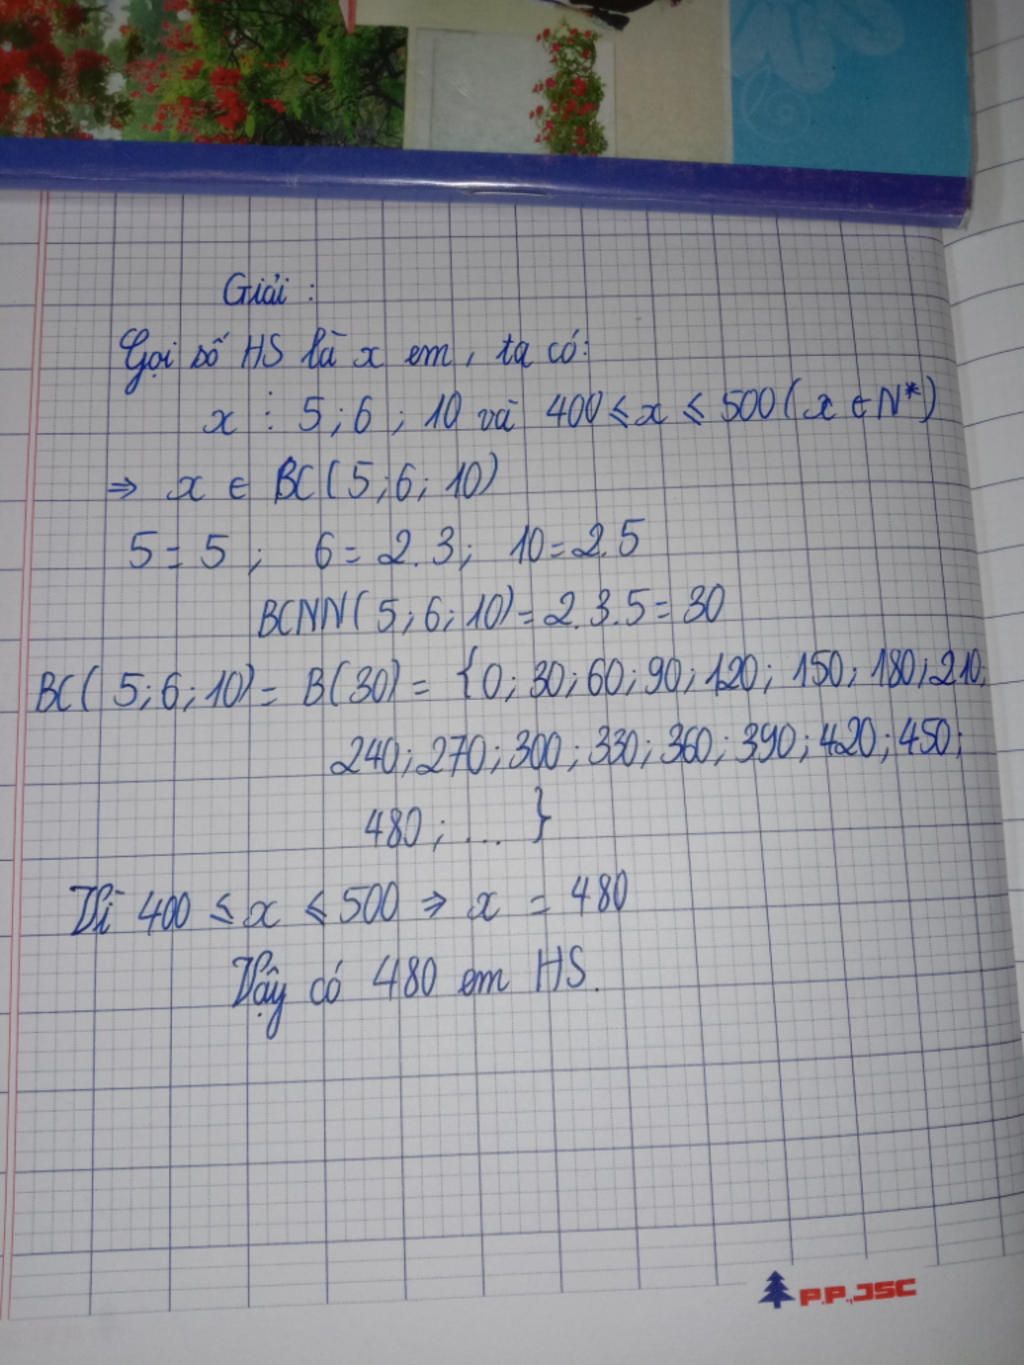 Giải :
Gọi số HS là x em, ta có:
x ⋮ 5 ; 6 ; 10 và 400 ≤ x ≤ 500 ( x ∈ N*)
⇒ x ∈ BC ( 5 ; 6 ; 10 )
5 = 5 ; 6 = 2.3 ; 10 = 2.5
BCNN ( 5 ; 6 ; 10 ) = 2.3.5 = 30
BC ( 5 ; 6 ; 10 ) = B(30) = {0; 30; 60; 90; 120; 150; 180; 210;
240; 270; 300; 330; 360; 390; 420; 450;
480; ... }
Vì 400 ≤ x ≤ 500 ⇒ x = 480
Vậy có 480 em HS.
P.P.,JSC